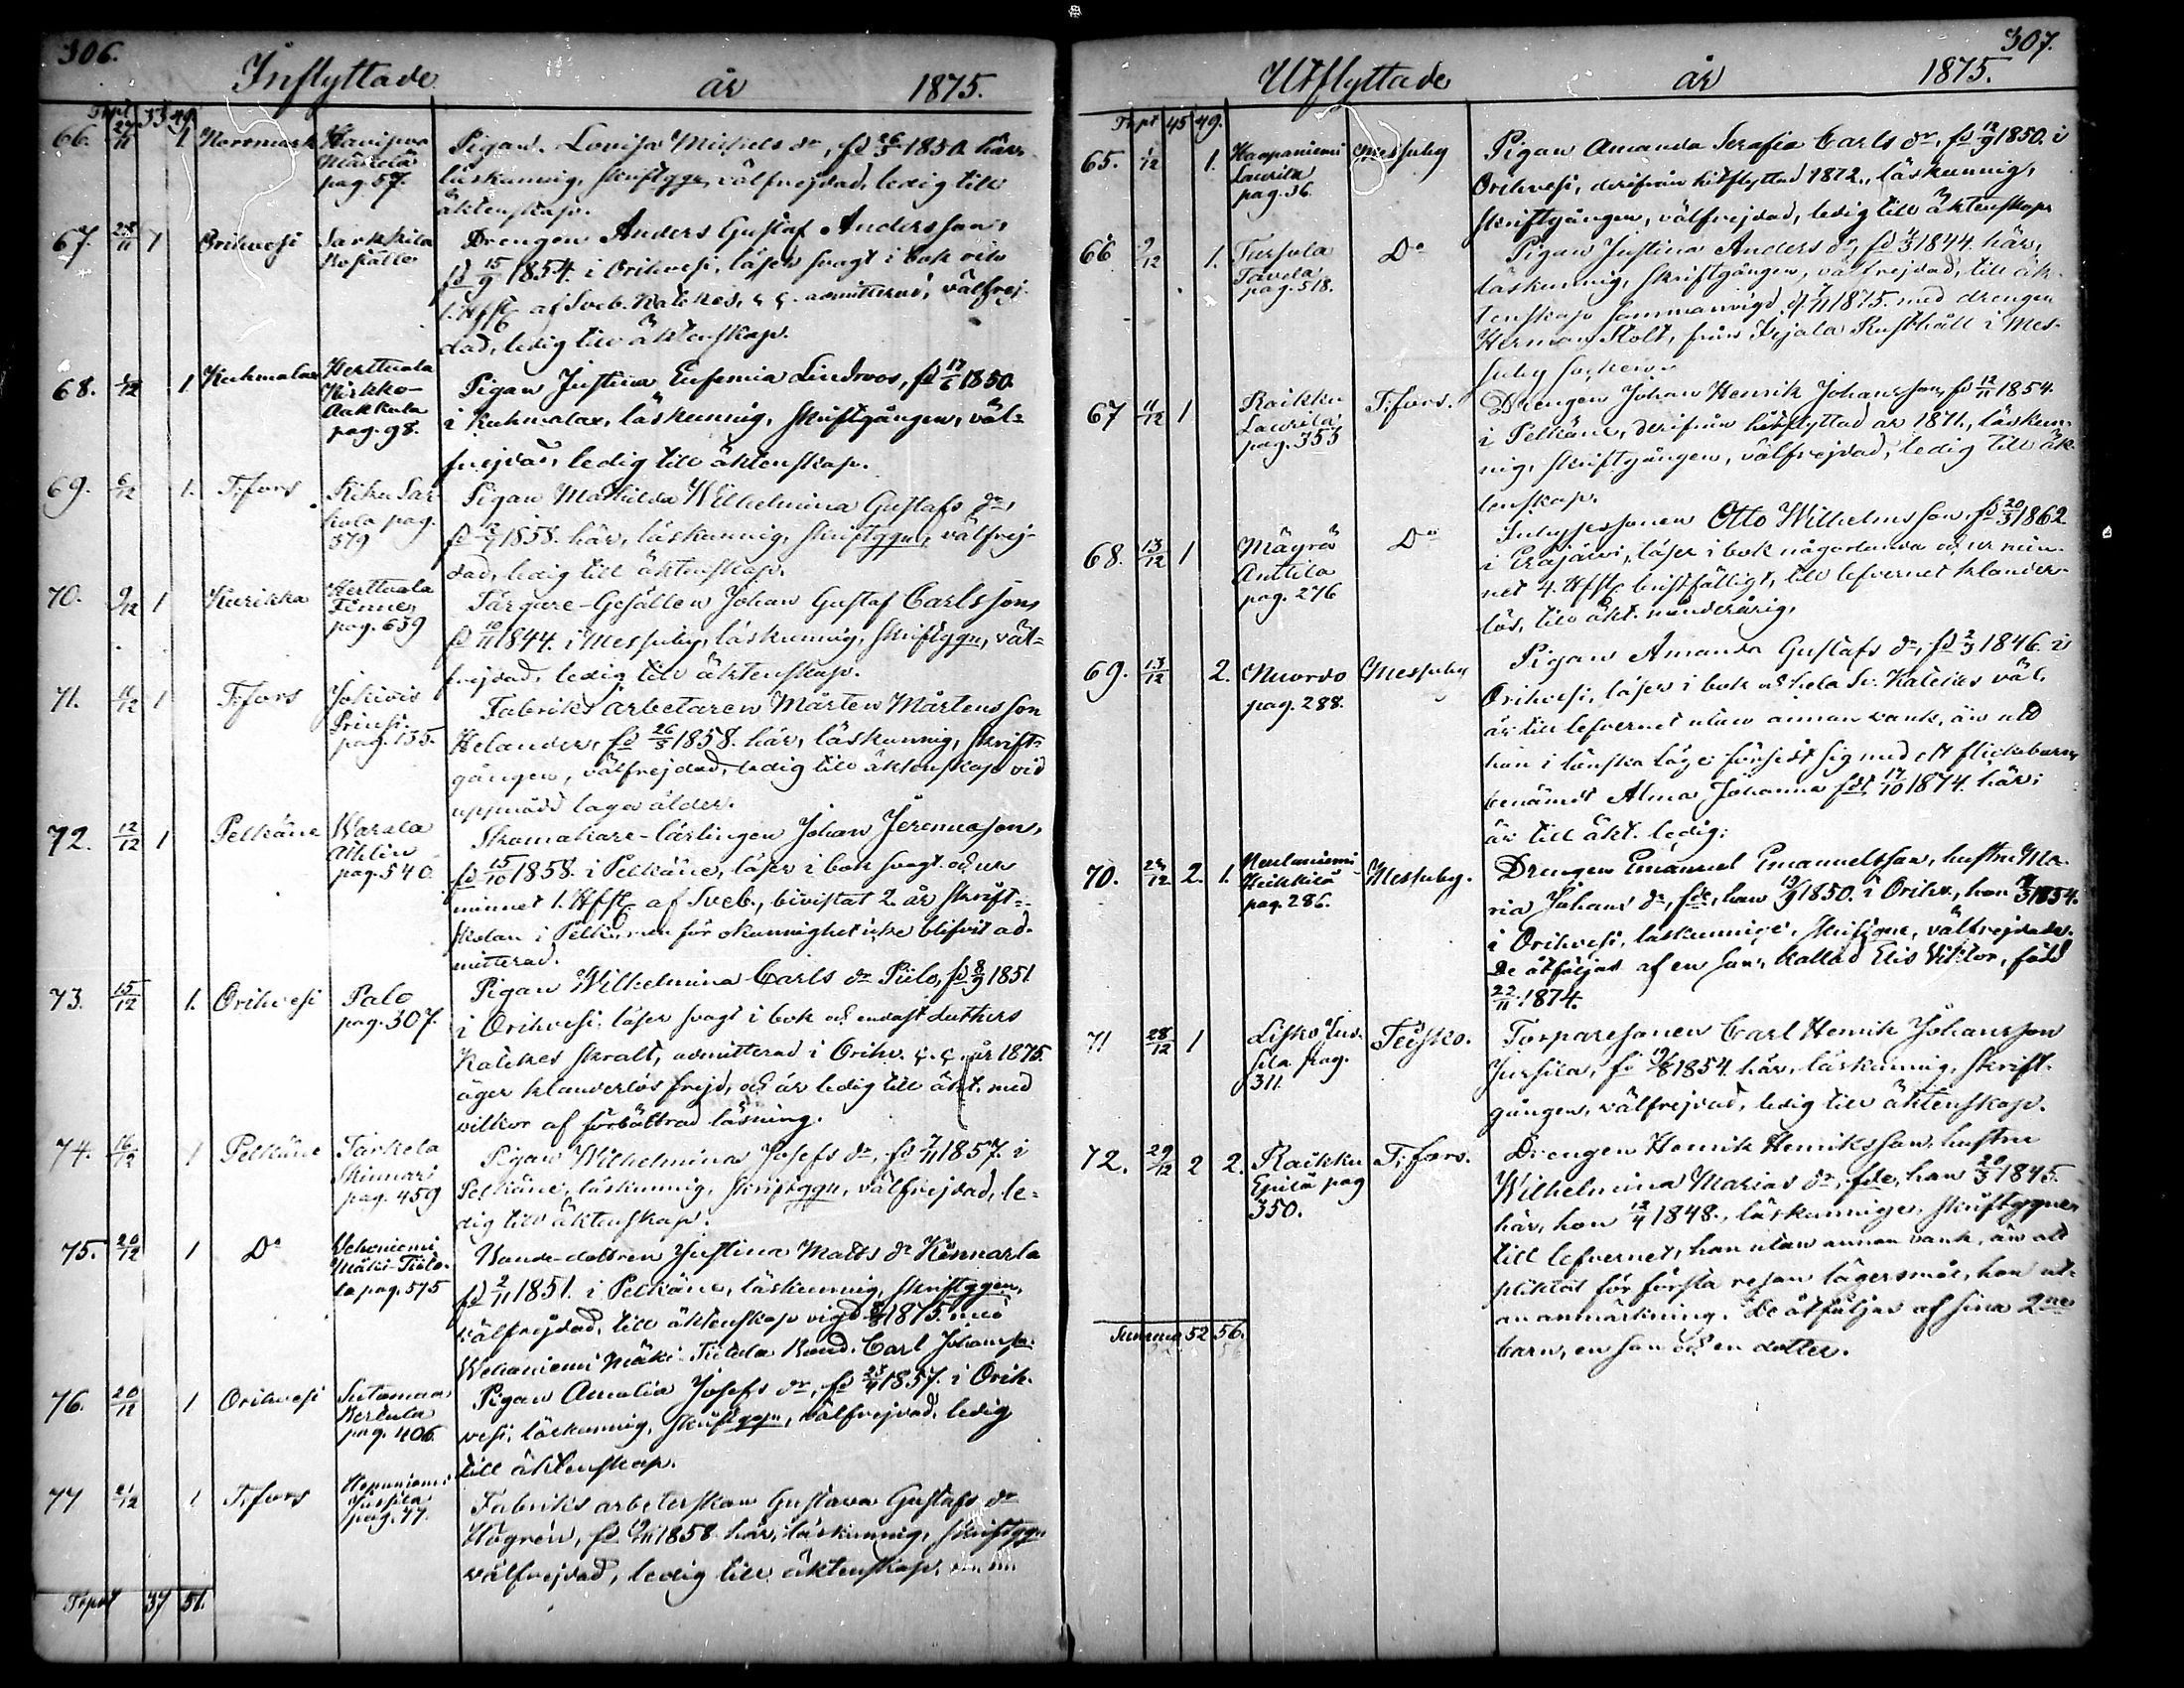 306.
Inflyttade år 1875.
Trpt 33 49.
66. 27/11 1 Norrmark
pag. 57.
Pigan Lovisa Michels dr, fd 26/3 1850. här,
läskunnig, skriftggn, välfrejdad, ledig till
äktenskap.
67. 28/11 1 Orihvesi Sarkkila
Drengen Anders Gustaf Andersson,
fd 15/9 1854. i Orihvesi, läser svagt i bok och
1. Hfst. af Sveb. Kateches, admitterad, välfrej-
dad, ledig till äktenskap.
68. 1/12 1 Kuhmalax Herttuala
Kirkko-
Aakkula
pag. 98.
Pigan Justina Eufemia Lindroos, fd 17/6 1850.
i Kuhmalax, läskunnig, skriftgången, väl-
frejdad, ledig till äktenskap.
69. 6/12 1. T:fors
pag.
379
Pigan Mathilda Wilhelmina Gustafs dr,
1858. här, läskunnig, skriftggn, välfrej-
dad, ledig till äktenskap.
70. 9/12 1 Kurikka Herttuala
Finne,
pag. 639
Färgare-Gesällen Johan Gustaf Carlsson,
fd 10/11 1844. i Messuby, läskunnig, skriftggn, väl-
frejdad, ledig till äktenskap.
71. 11/12 1 T:fors Jokiois
Prinsi.
pag. 135.
Fabriks arbetaren Mårten Mårtensson
Helander, fd 26/5 1858. här, läskunnig, skrift-
gången, välfrejdad, ledig till äktenskap vid
uppnådd laga ålder.
72. 12/12 1 Pelkäne Warala
Ahlin
pag. 540
Skomakare-lärlingen Johan Jeremiasson,
fd 15/10 1858. i Pelkäne, läser i bok svagt och ur
minnet 1. Hfst. af Sveb., bivistat 2. år skrift-
skolan i Pelkäne, men för okunnighet icke blifvit ad-
mitterad.
73. 15/12 1. Orihvesi Palo
pag. 307.
Pigan Wilhelmina Carls dr Piilo, fd 8/9 1851
i Orihvesi, läser svagt i bok och endast Luthers
Katekes skralt, admitterad i Orihv. år 1875.
äger klanderlös frejd, och är ledig till äkt. med
vilkor af förbättrad läsning.
74. 16/12 1 Pelkäne
Skinnari
pag. 459
Pigan Wilhelmina Josefs dr, fd 7/11 1857. i
Pelkäne, läskunnig, skriftggn, välfrejdad, le-
dig till äktenskap.
75. 20/12 1 Do Wehoniemi
Mäki-Tiito-
la pag. 575
Bonde-dottren Justina Matts dr Kinnarla
fd 2/11 1851. i Pelkäne, läskunnig, skriftggn,
välfrejdad, till äktenskap vigd 1875. med
Wehoniemi Mäki-Tiitola Bond. Carl Johanss:
76. 20/12 1 Orihvesi Sutomaa
Kertula
pag. 406
Pigan Amalia Josefs dr, fd 1857. i Orih-
vesi, läskunnig, skriftggn, välfrejdad, ledig
till äktenskap.
77 21/12 1 T:fors
Jussila
pag. 77.
Fabriks arbeterskan Gustava Gustafs dr
Högren, fd 1858. här, läskunnig, skriftggn
välfrejdad, ledig till äktenskap,
Trpt 37 51.
307.
Utflyttade år 1875.
Trpt 45 49.
65. 1/12 1. Haapaniemi
Laurila
pag. 36.
Messuby
Pigan Amanda Serafia Carls dr, fd 12/9 1850. i
Orihvesi, derifrån hitflyttad 1872., läskunnig,
skriftgången, välfrejdad, ledig till äktenskap.
66 9/12 1. Tursola
pag. 518.
Do
Pigan Justina Anders dr, fd 4/3 1844. här,
läskunnig, skriftgången, välfrejdad, till äk-
tenskap sammanvigd d. 1875. med drengen
Herman Stolt, från Irjala Rusthåll i Mes-
suby socken.
67 11/12 1 Raikku
Laurila
pag. 355
T:fors.
Drengen Johan Henrik Johansson, fd 12/11 1854.
i Pelkäne, derifrån hitflyttad år 1871., läskun-
nig, skriftgången, välfrejdad, ledig till äk-
tenskap.
68. 13/12 1 Mäyrä
Anttila
pag. 276
Do
Inhysessonen Otto Wilhelmsson, fd 20/3 1862
i Eräjärvi, läser i bok någorlunda och ur min-
net 4. Hfst. bristfälligt, till lefvernet klander-
lös, till äkt. minderårig.
69. 13/12 2. Nuordo
pag. 288.
Messuby
Pigan Amanda Gustafs dr, fd 2/3 1846. i
Orihvesi, läser i bok och hela Sv. Kateches väl,
är till lefvernet utan annan vank, än att
hon i lönska läge försedt sig med ett flickebarn,
benämdt Alma Johanna född 17/10 1874. här;
är till äkt. ledig.
70. 28/12 2. 1.
Heikkilä
pag. 286.
Messuby.
Drengen Emanuel Emanuelsson, hustru Ma-
ria Johans dr, fdde, han 13/9 1850. i Orihv., hon 1854.
i Orihvesi, läskunnige, skriftggne, välfrejdade.
De åtföljas af en son, kallad Elis Viktor, född
22/11 1874.
71 28/12 1 Lisko Jus-
sila pag.
311.
Teisko.
Torparesonen Carl Henrik Johansson
Jussila, fd 19/8 1854. här, läskunnig, skrift-
gången, välfrejdad, ledig till äktenskap.
72. 29/12 2 2. Raikku
Eerilä pag
350.
T:fors.
Drengen Henrik Henriksson, hustru
Wilhelmina Marias dr, fdde, han 20/3 1845.
här, hon 12/4 1848., läskunnige, skriftggne,
till lefvernet, han utan annan vank, än att
pliktat för första resan lägersmål, hon ut-
an anmärkning. De åtföljas af sina 2ne
barn, en son och en dotter.
Summa 52 56.